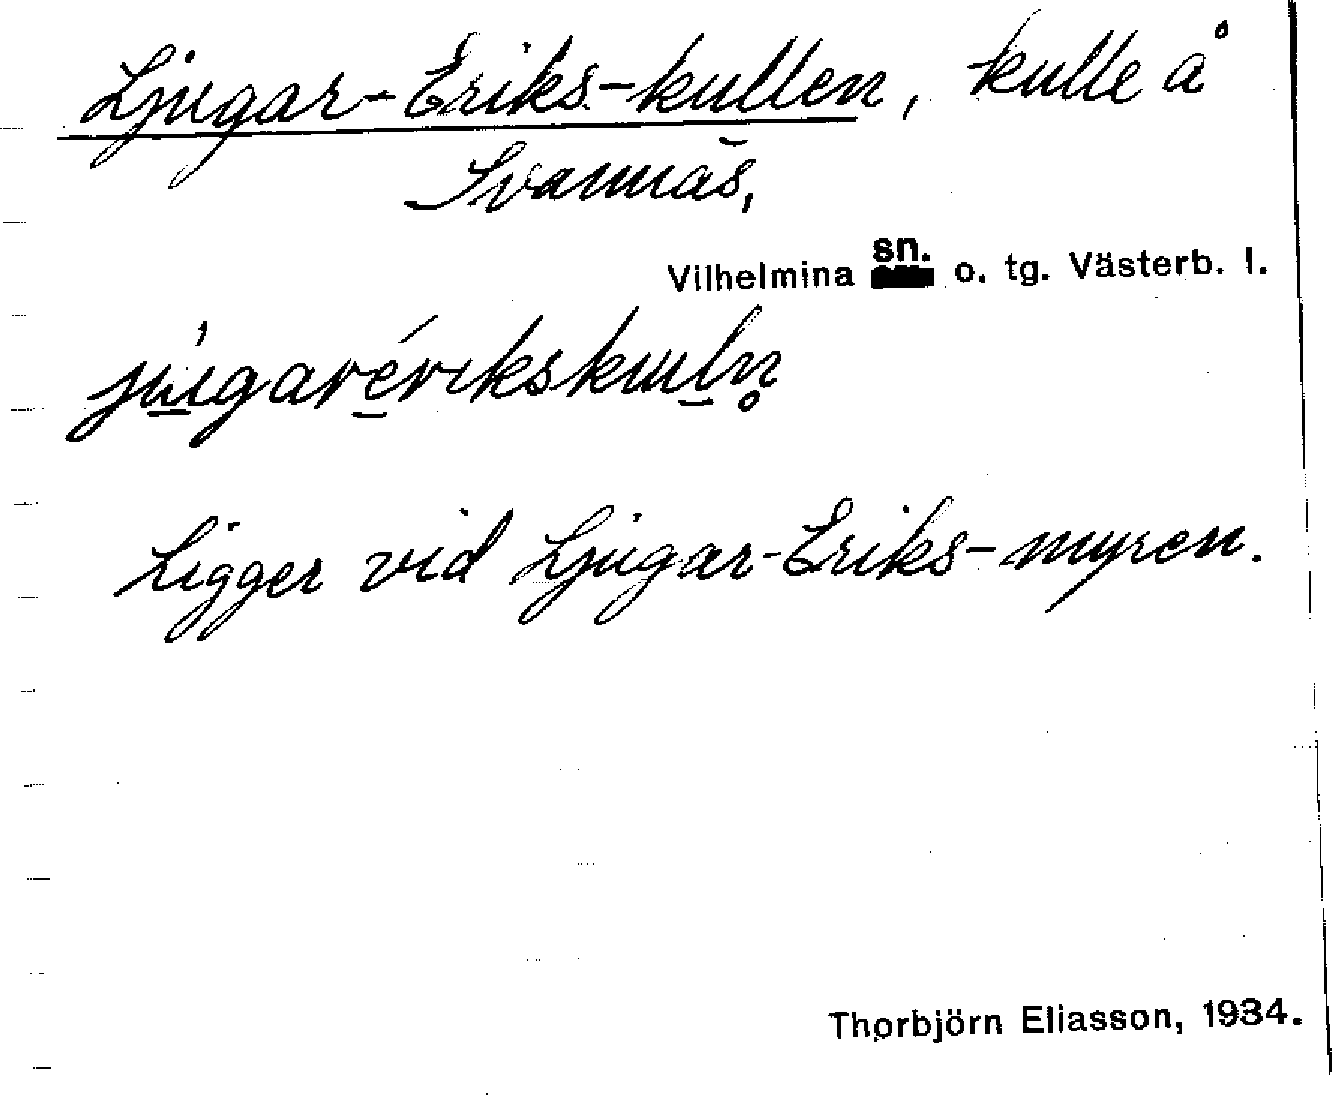 Ljugar-Eriks-kullen, kulle å
Svannäs,
Vilhelmina sn. o. tg. Västerb. l.
jú̱garé̱rikskuḻn̥
Ligger vid Ljugar-Eriks-myren.
Thorbjörn Eliasson, 1934.